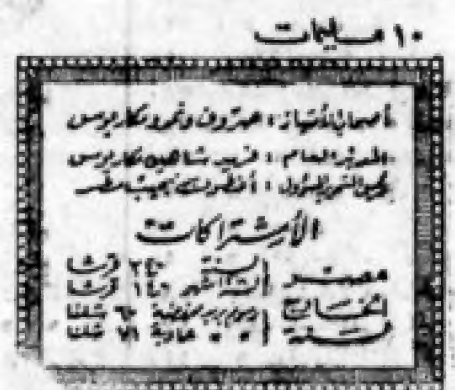 ١٠ مليمات
أصحاب الامتياز: صروف ونمر ومكاريوس
المدير العام: فريد شاهين مكاريوس
رئيس التحرير المسؤول: أنطون نجيب مطر
الاشتراكات
مصر السنة ٢٤٠ قرشا
٦ أشهر ١٤٦ قرشا
الخارج رسوم بريد مخفضة ٦٠ شلنا
لسنة " " عادية ٧١ شلنا